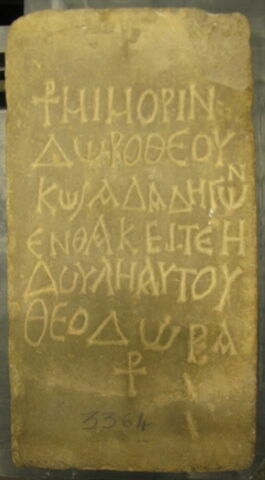 ☩ ΜΙΜΟΡΙΝ
ΔωΡΟΘΕΟΥ
ΚωϳΑΔΑΔΗΓωΝ
ΕΝΘΑΚΕΙΤΕΗ
ΔΟΥΛΗΑΥΤΟΥ
ΘΕΟΔωΡΑ
⳨
3364